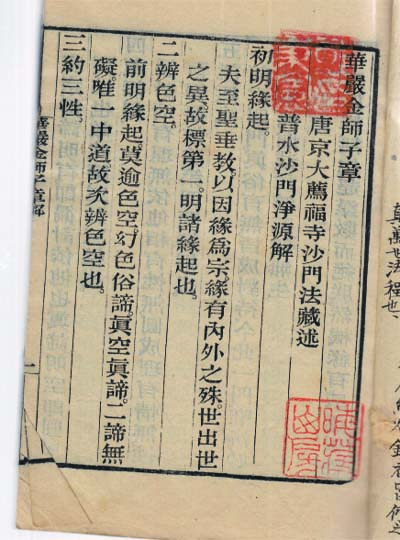 萬世法程也
華嚴金師子章
唐京大薦福寺沙門法藏述
普水沙門淨源解
初明緣起。
夫至聖垂教。以因緣爲宗。緣有內外之殊世出世
之異。故標第一。明諸緣起也。
二辨色空。
前明緣起。莫逾色空。幻色俗諦。眞空眞諦。二諦無
礙。唯一中道。故次辨色空也。
三約三性。
華嚴金師子章解
一